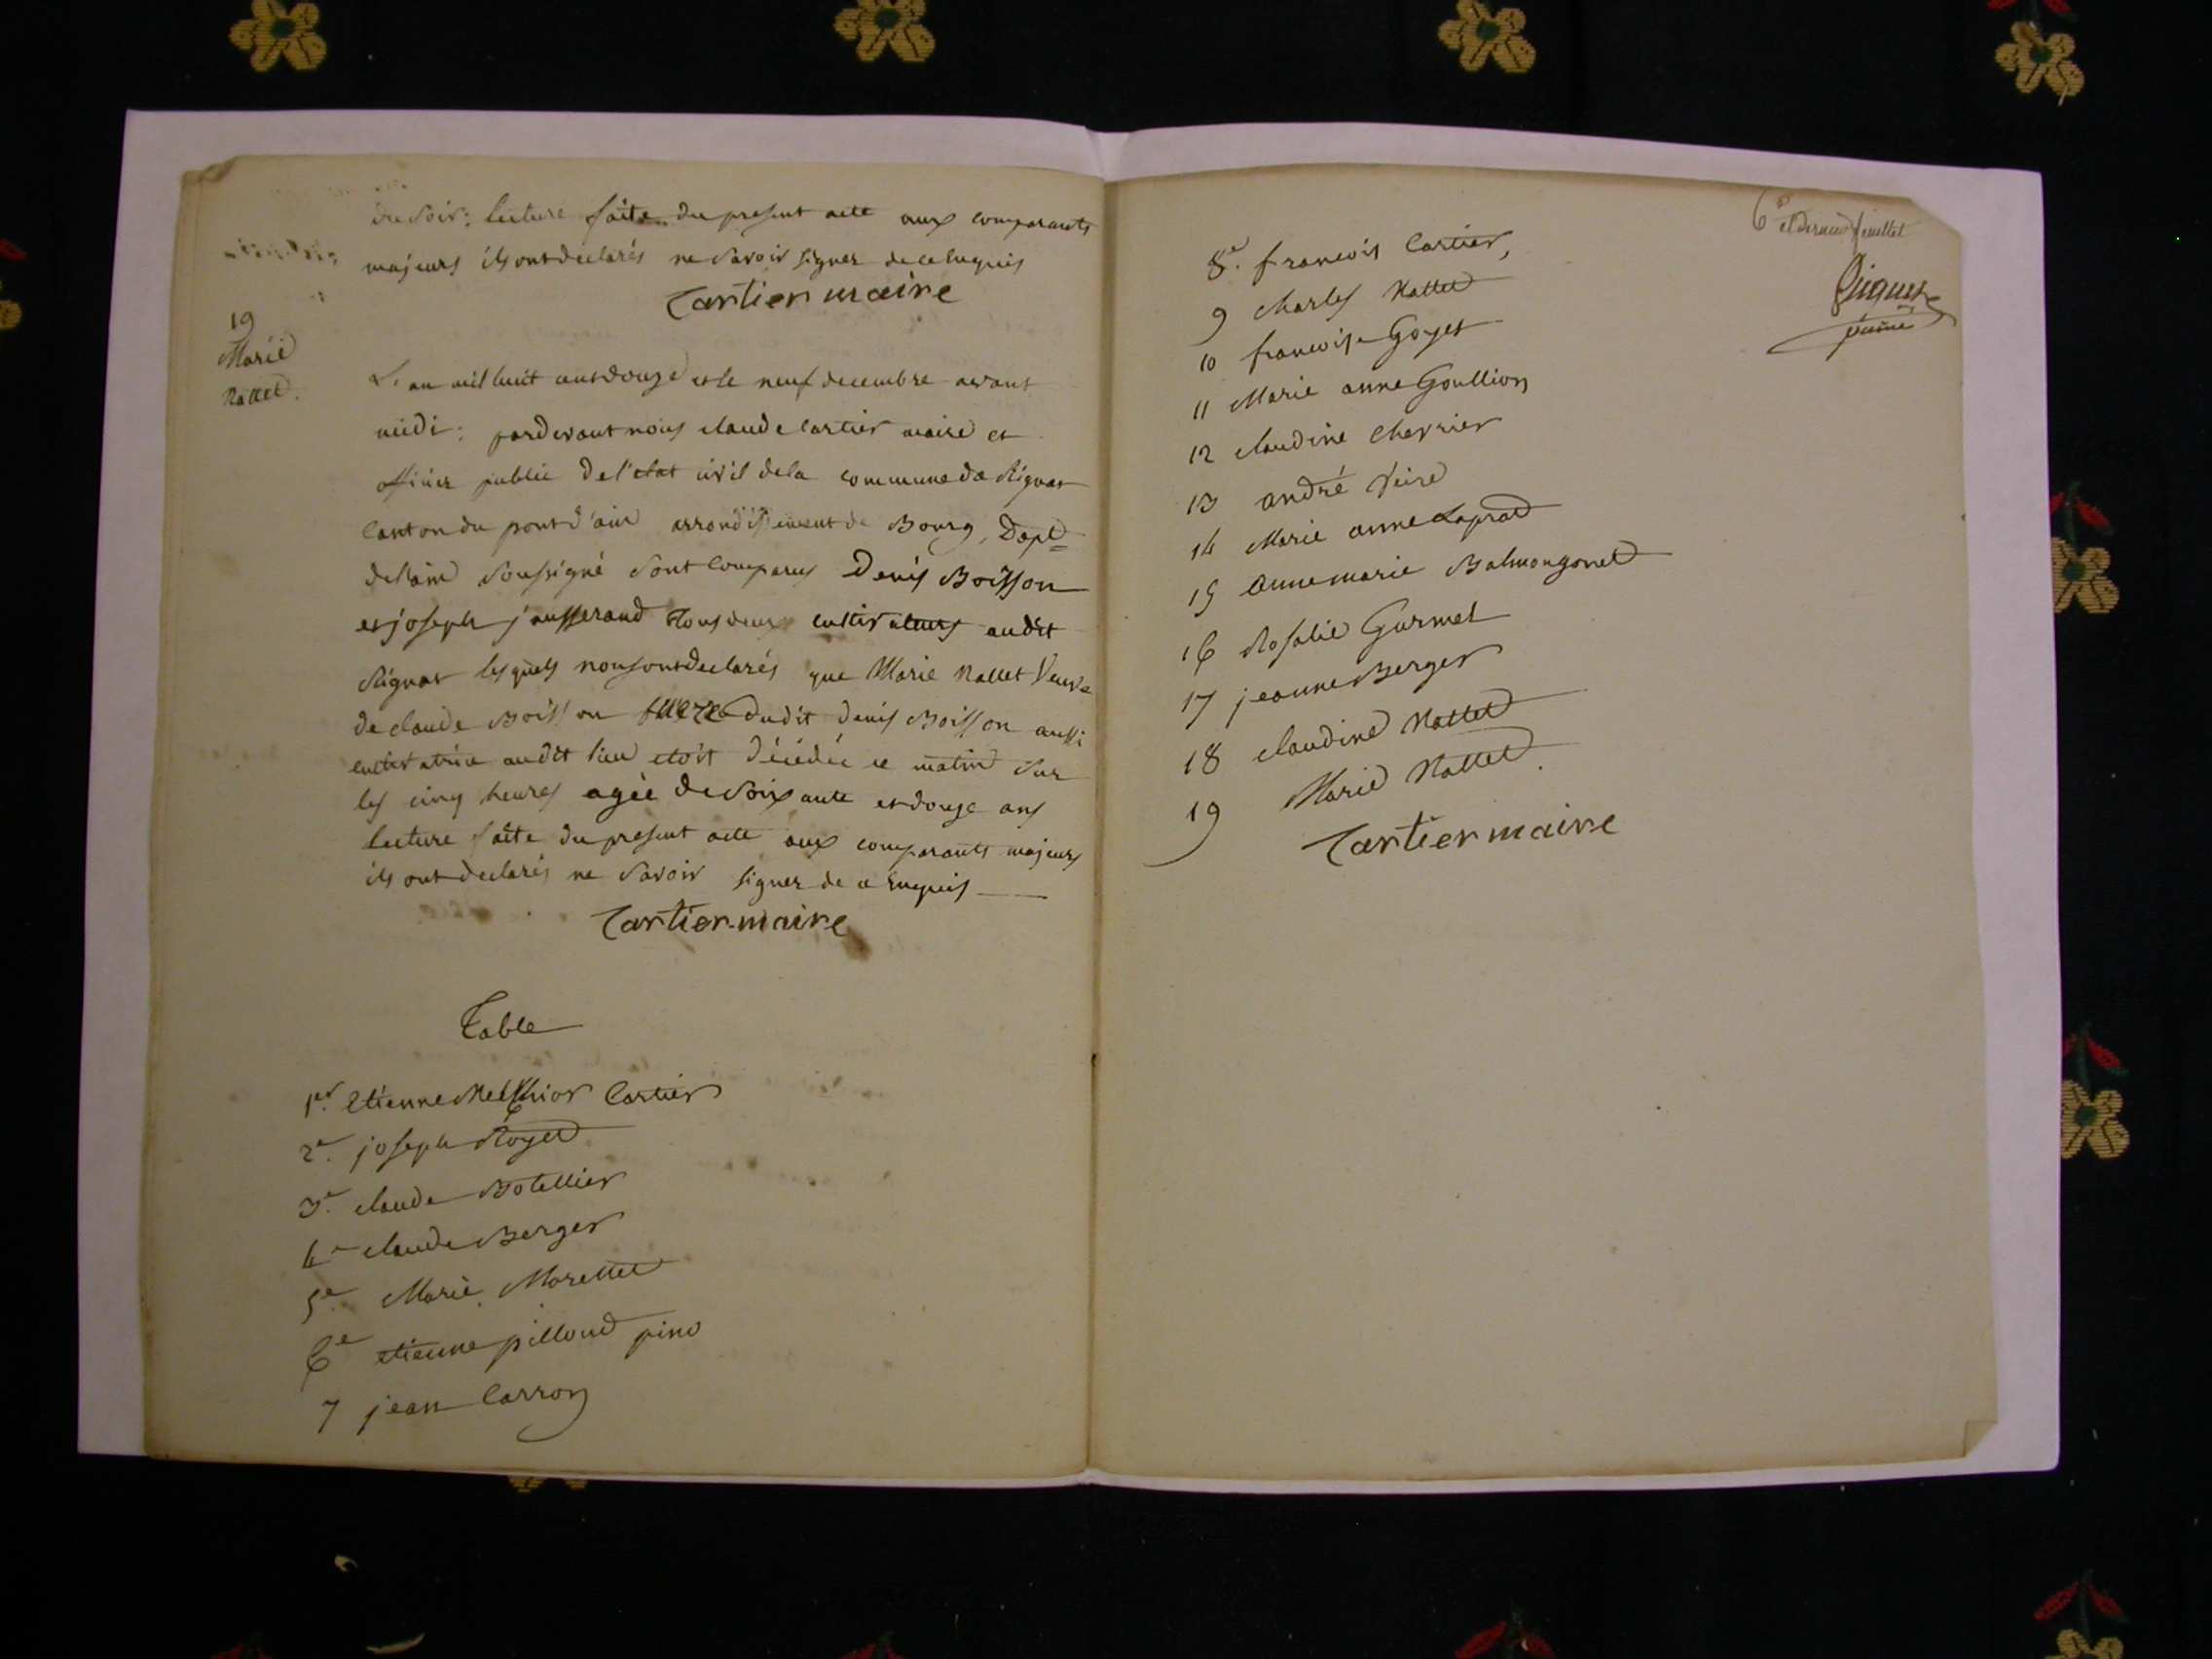 du soir; lecture faite du present acte aux comparants
majeurs ils ont declarés ne savoir signer de ce enquis
Cartier maire
19
Marie
Nallet.
L'an mil huit cent douze et le neuf decembre avant
midi; pardevant nous claude Cartier maire et
officier public de l'etat civil de la commune de Rignat
Canton du pont d'ain arrondissement de Bourg, Dept
de l'ain soussigné sont comparus Denis Boisson
et joseph jausserand tous deux cultivateurs audit
Rignat lesquels nous ont declarés que Marie Nallet Veuve
de claude Boisson mere dudit denis Boisson aussi
cultivatrice audit lieu etoit décédée ce matin sur
les cinq heures agée de soixante et douze ans
lecture faite du present acte aux comparants majeurs
ils ont declarés ne savoir signer de ce enquis
Cartier maire
Table
1er. Etienne Melchior Cartier
2e. joseph Royet
3e. claude Botellier
4e claude Berger
5e. Marie Morellet
6e etienne pilloud pino
7 jean Carron
6e et dernier feuillet
8e. francois Cartier,
9 charles Nallet
10 francoise Goyet
11 Marie anne Goullion
12 claudine chevrier
13 andré
14 Marie anne Laprad
15 anne marie Balmongonet
16 Rosalie Gurmet
17 jeanne Berger
18 claudine Nallet
19 Marie Nallet.
Cartier maire